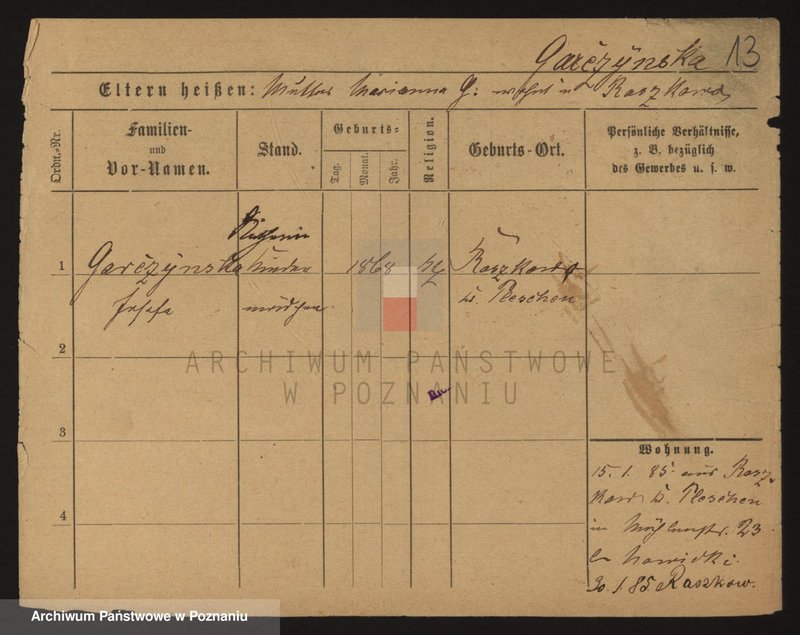 Garczynska 13
Eltern heißen: Mutter Marianna G: wohnt in Raszkowo
Ordn.-Nr.
Familien-
und
Vor-Namen.
Stand.
Geburts-
Tag.
Monat.
Jahr.
Religion.
Geburts-Ort.
Persönliche Verhältnisse,
z. B. bezüglich
des Gewerbes u. s. w.
1 Garczynska Kinder 1868 Raszkowo
Josefa mädchen Pleschen
2
ARCHIWUM PAŃSTWOWE
W POZNANIU
3
Wohnung.
15. 1. 85. aus Rasz
kow Pleschen
in Mühlenstr. 23
4
Nowicki.
30. 1. 85 Raszkow.
Archiwum Państwowe w Poznaniu